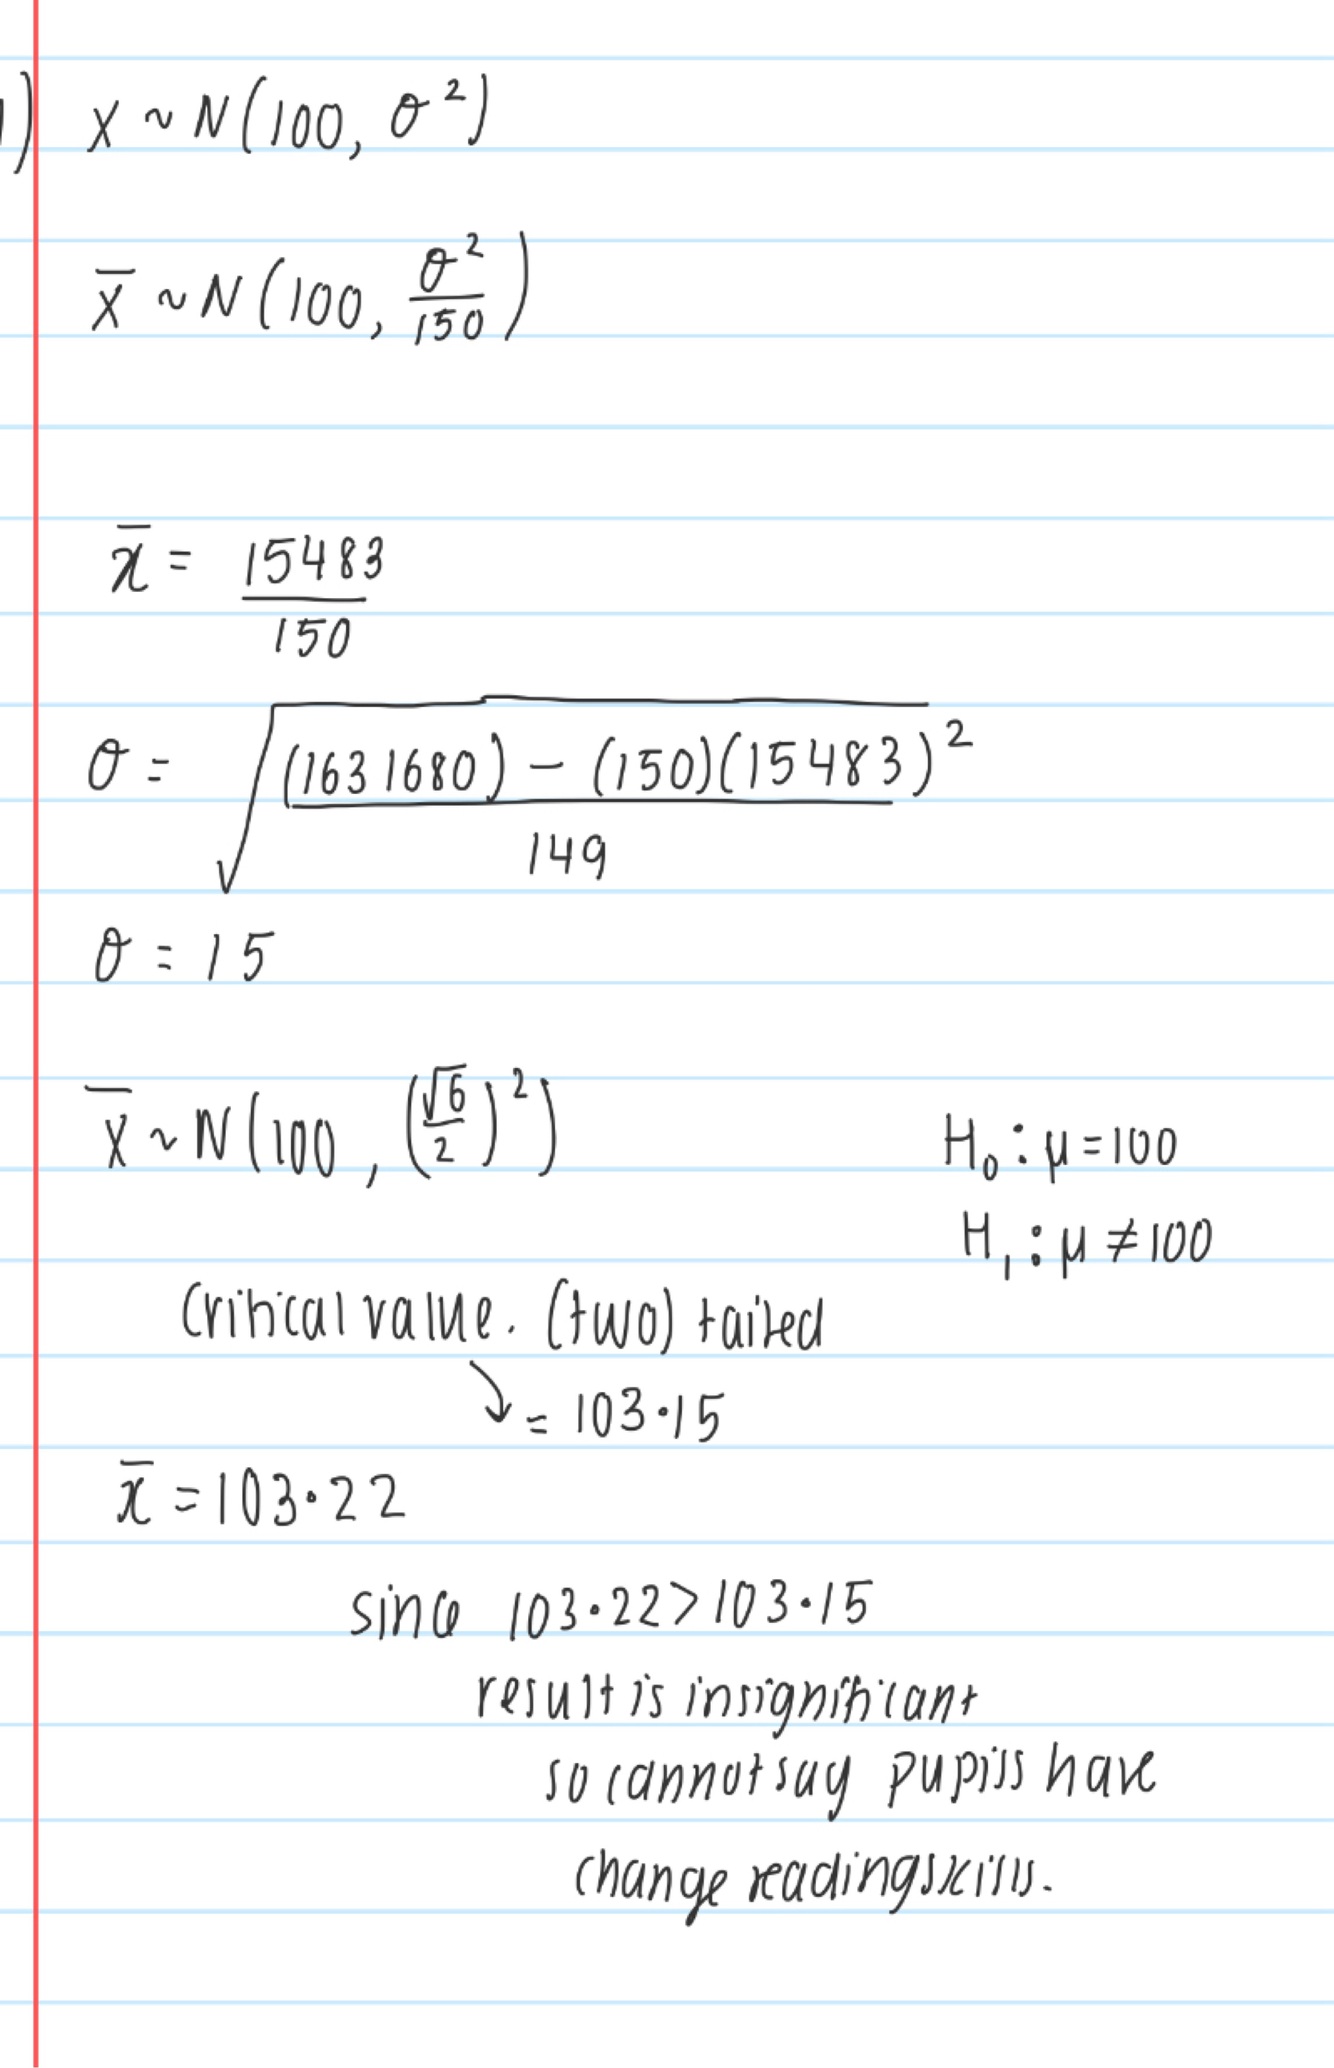 1) X ~ N(100, σ²)
X̄ ~ N(100, σ²/150)
x̄ = 15483/150
σ = √((1631680) - (150)(15483)²/149)
σ = 15
X̄ ~ N(100, (√6/2)²)
H₀ : μ = 100
H₁ : μ ≠ 100
Critical value. (two) tailed
↘ = 103.15
x̄ = 103.22
since 103.22 > 103.15
result is insignificant
so cannot say pupils have
change reading skills.